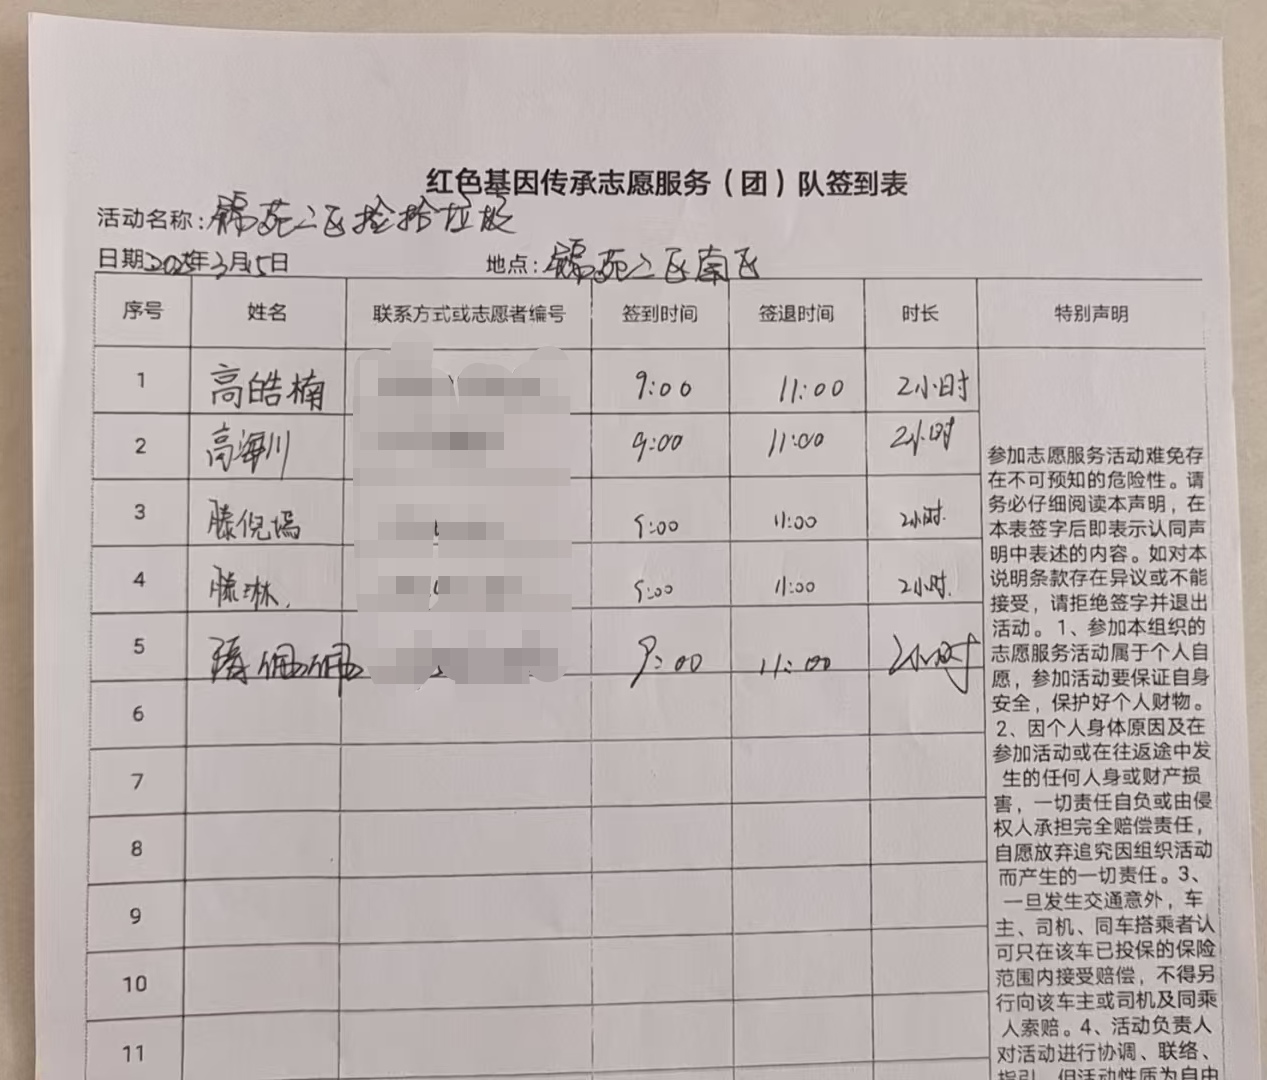 红色基因传承志愿服务（团）队签到表
活动名称：锦苑二区捡拾垃圾
日期2025年3月15日 地点：锦苑二区南区
序号 姓名 联系方式或志愿者编号 签到时间 签退时间 时长 特别声明
1 高皓楠 9:00 11:00 2小时
2 高海川 9:00 11:00 2小时
3 滕倪嫣 9:00 11:00 2小时
4 滕琳 9:00 11:00 2小时
5 佩佩 9:00 11:00 2小时
6
7
8
9
10
11
参加志愿服务活动难免存
在不可预知的危险性。请
务必仔细阅读本声明，在
本表签字后即表示认同声
明中表述的内容。如对本
说明条款存在异议或不能
接受，请拒绝签字并退出
活动。1、参加本组织的
志愿服务活动属于个人自
愿，参加活动要保证自身
安全，保护好个人财物。
2、因个人身体原因及在
参加活动或在往返途中发
生的任何人身或财产损
害，一切责任自负或由侵
权人承担完全赔偿责任，
自愿放弃追究因组织活动
而产生的一切责任。3、
一旦发生交通意外，车
主、司机、同车搭乘者认
可只在该车已投保的保险
范围内接受赔偿，不得另
行向该车主或司机及同乘
人索赔。4、活动负责人
对活动进行协调、联络、
指引，但活动性质为自由